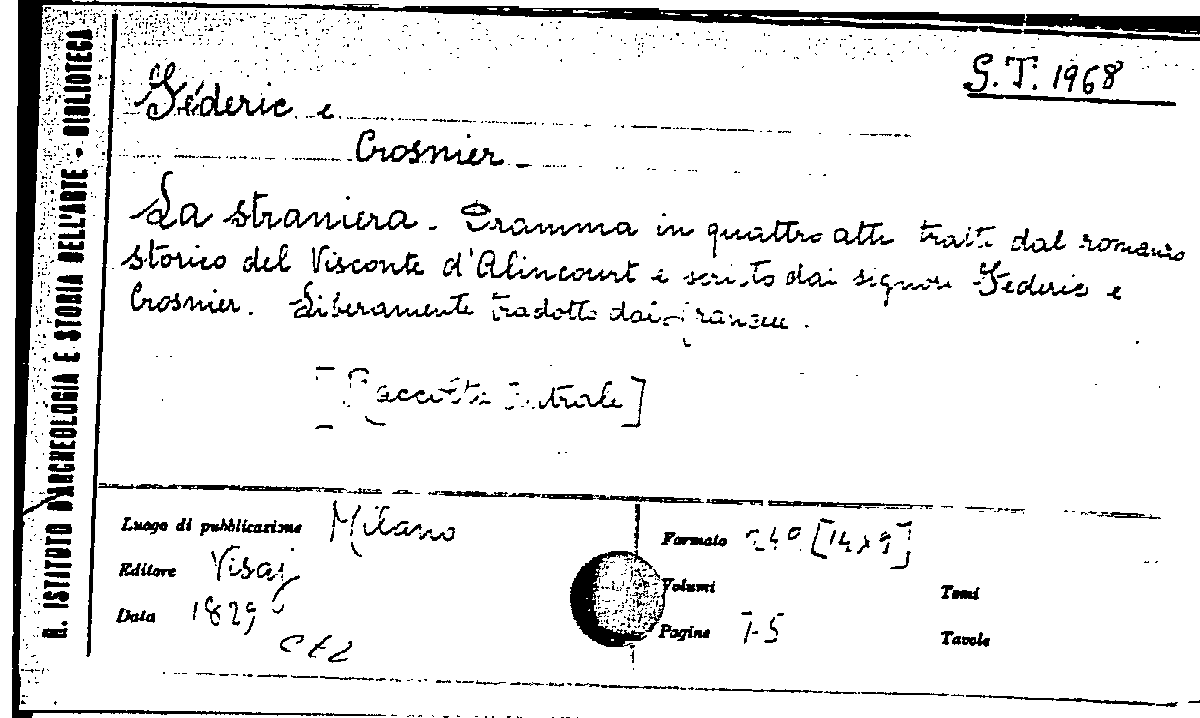 R. ISTITUTO D'ARCHEOLOGIA E STORIA DELL'ARTE - BIBLIOTECA
S.T. 1968
Féderic e
Crosnier
La straniera. Dramma in quattro atti tratti dal romanzo
storico del Visconte d'Alincourt e scritto dai signori Féderic e
Crosnier. Liberamente tradotto dal francese.
[Raccolta teatrale]
Luogo di pubblicazione Milano
Formato 24° [14x9]
Editore Visaj
Volumi
Tomi
Data 1829
Pagine
Tavole